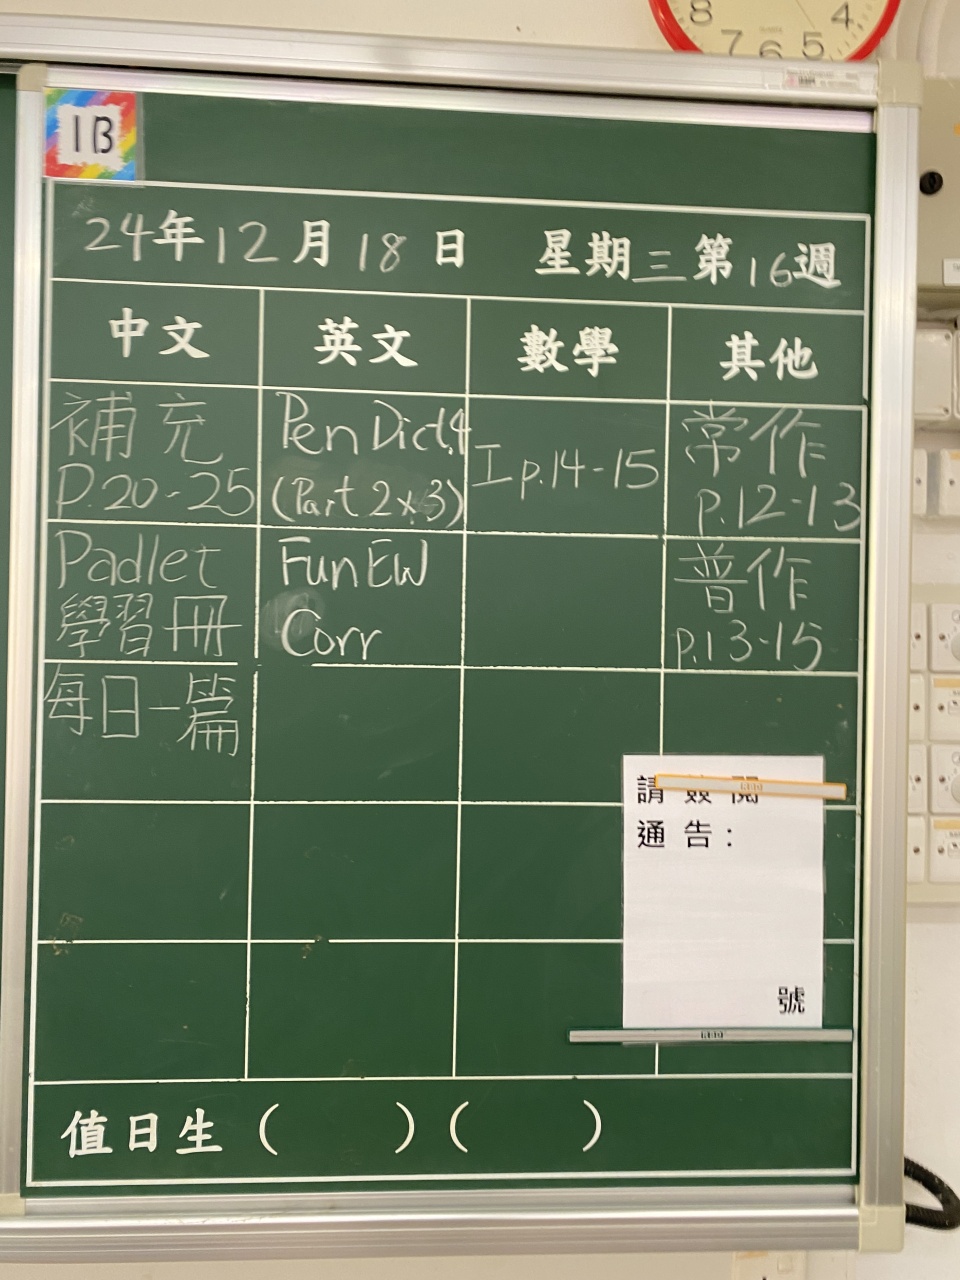 8 7 6 5 4
1B
24年12月18日 星期三第16週
中文 英文 數學 其他
補充
P.20-25
Pen Dict.4
(Part 2x3)
I p.14-15
常作
p.12-13
Padlet
學習冊
Fun EW
Corr
普作
p.13-15
每日一篇
請簽閱
通告：
號
值日生（ ）（ ）